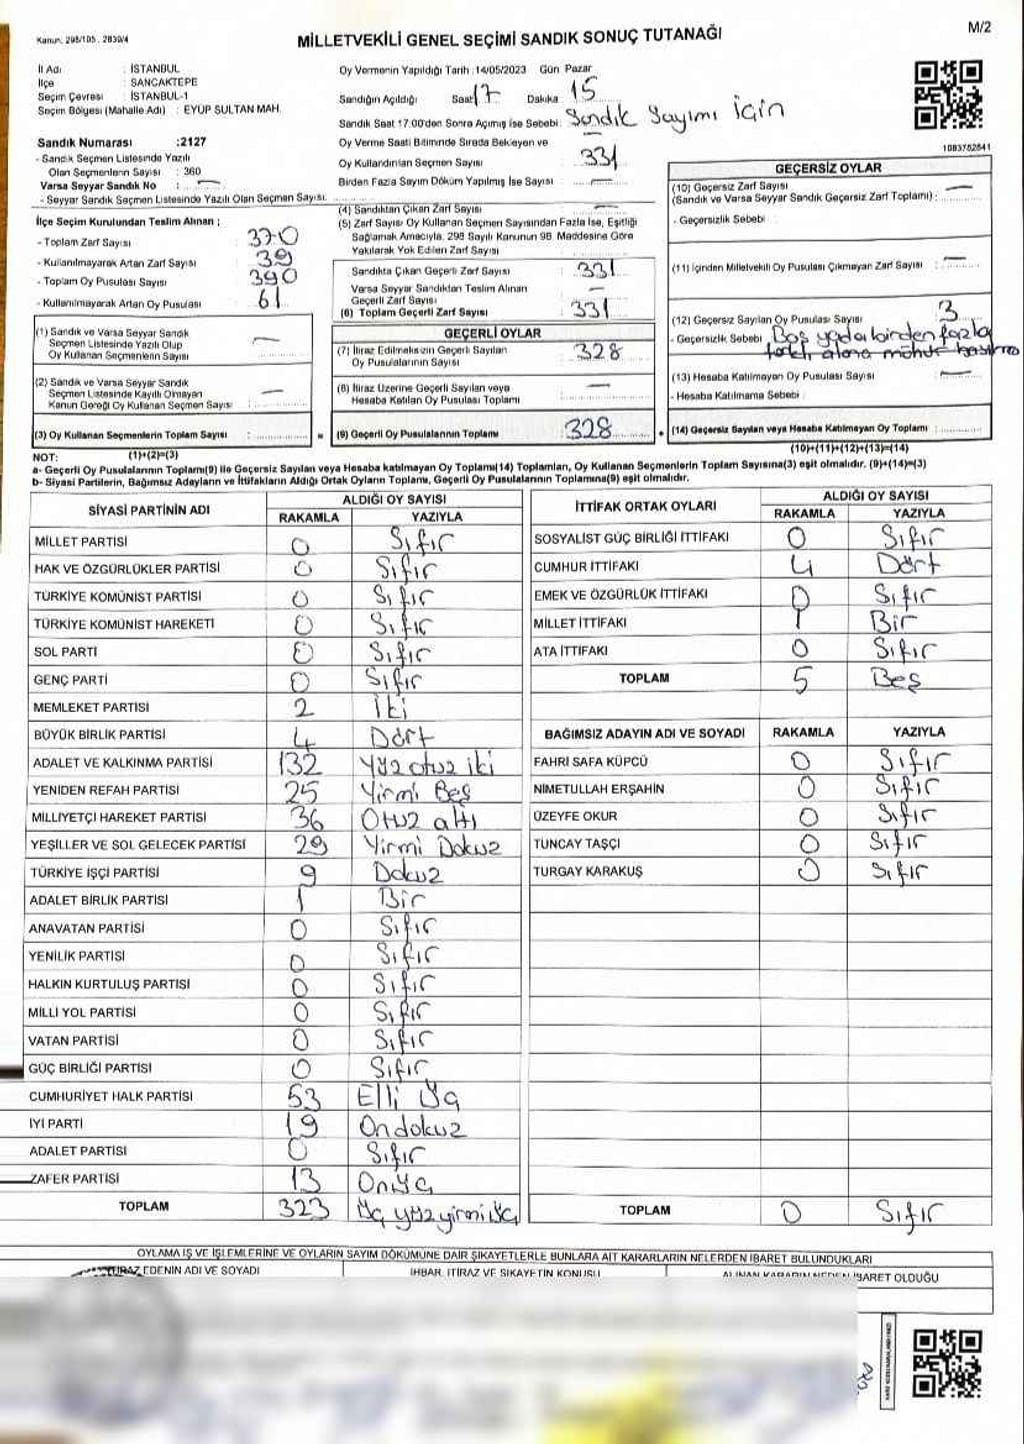 M/2
Kanun: 298/105 . 2839/4
MİLLETVEKİLİ GENEL SEÇİMİ SANDIK SONUÇ TUTANAĞI
İl Adı : İSTANBUL
İlçe : SANCAKTEPE
Seçim Çevresi : İSTANBUL-1
Seçim Bölgesi (Mahalle Adı) : EYÜP SULTAN MAH.
Sandık Numarası :2127
- Sandık Seçmen Listesinde Yazılı
Olan Seçmenlerin Sayısı : 360
Varsa Seyyar Sandık No : —
- Seyyar Sandık Seçmen Listesinde Yazılı Olan Seçmen Sayısı:
Oy Vermenin Yapıldığı Tarih :14/05/2023 Gün Pazar
Sandığın Açıldığı Saat 17 Dakika 15
Sandık Saat 17:00'den Sonra Açılmış İse Sebebi: Sandık Sayımı için
Oy Verme Saati Bitiminde Sırada Bekleyen ve
Oy Kullandırılan Seçmen Sayısı : 331
Birden Fazla Sayım Döküm Yapılmış İse Sayısı : —
1083782841
İlçe Seçim Kurulundan Teslim Alınan ;
- Toplam Zarf Sayısı : 370
- Kullanılmayarak Artan Zarf Sayısı : 39
- Toplam Oy Pusulası Sayısı : 390
- Kullanılmayarak Artan Oy Pusulası : 61
(1) Sandık ve Varsa Seyyar Sandık
Seçmen Listesinde Yazılı Olup
Oy Kullanan Seçmenlerin Sayısı : —
(2) Sandık ve Varsa Seyyar Sandık
Seçmen Listesinde Kayıtlı Olmayan
Kanun Gereği Oy Kullanan Seçmen Sayısı : —
(3) Oy Kullanan Seçmenlerin Toplam Sayısı :
(4) Sandıktan Çıkan Zarf Sayısı : —
(5) Zarf Sayısı Oy Kullanan Seçmen Sayısından Fazla İse, Eşitliği
Sağlamak Amacıyla, 298 Sayılı Kanunun 98. Maddesine Göre
Yakılarak Yok Edilen Zarf Sayısı :
Sandıkta Çıkan Geçerli Zarf Sayısı : 331
Varsa Seyyar Sandıktan Teslim Alınan
Geçerli Zarf Sayısı : —
(6) Toplam Geçerli Zarf Sayısı : 331
GEÇERLİ OYLAR
(7) İtiraz Edilmeksizin Geçerli Sayılan
Oy Pusulalarının Sayısı : 328
(8) İtiraz Üzerine Geçerli Sayılan veya
Hesaba Katılan Oy Pusulası Toplamı : —
(9) Geçerli Oy Pusulalarının Toplamı : 328
GEÇERSİZ OYLAR
(10) Geçersiz Zarf Sayısı
(Sandık ve Varsa Seyyar Sandık Geçersiz Zarf Toplamı) : —
- Geçersizlik Sebebi :
(11) İçinden Milletvekili Oy Pusulası Çıkmayan Zarf Sayısı : —
(12) Geçersiz Sayılan Oy Pusulası Sayısı : 3
- Geçersizlik Sebebi : Boş yada birden fazla
alana mühür
(13) Hesaba Katılmayan Oy Pusulası Sayısı : —
- Hesaba Katılmama Sebebi :
(14) Geçersiz Sayılan veya Hesaba Katılmayan Oy Toplamı :
NOT: (1)+(2)=(3) (10)+(11)+(12)+(13)=(14)
a- Geçerli Oy Pusulalarının Toplamı(9) ile Geçersiz Sayılan veya Hesaba katılmayan Oy Toplamı(14) Toplamları, Oy Kullanan Seçmenlerin Toplam Sayısına(3) eşit olmalıdır. (9)+(14)=(3)
b- Siyasi Partilerin, Bağımsız Adayların ve İttifakların Aldığı Ortak Oyların Toplamı, Geçerli Oy Pusulalarının Toplamına(9) eşit olmalıdır.
SİYASİ PARTİNİN ADI ALDIĞI OY SAYISI
RAKAMLA YAZIYLA
MİLLET PARTİSİ 0 Sıfır
HAK VE ÖZGÜRLÜKLER PARTİSİ 0 Sıfır
TÜRKİYE KOMÜNİST PARTİSİ 0 Sıfır
TÜRKİYE KOMÜNİST HAREKETİ 0 Sıfır
SOL PARTİ 0 Sıfır
GENÇ PARTİ 0 Sıfır
MEMLEKET PARTİSİ 2 İki
BÜYÜK BİRLİK PARTİSİ 4 Dört
ADALET VE KALKINMA PARTİSİ 132 Yüz otuz iki
YENİDEN REFAH PARTİSİ 25 Yirmi Beş
MİLLİYETÇİ HAREKET PARTİSİ 36 Otuz altı
YEŞİLLER VE SOL GELECEK PARTİSİ 29 Yirmi Dokuz
TÜRKİYE İŞÇİ PARTİSİ 9 Dokuz
ADALET BİRLİK PARTİSİ 1 Bir
ANAVATAN PARTİSİ 0 Sıfır
YENİLİK PARTİSİ 0 Sıfır
HALKIN KURTULUŞ PARTİSİ 0 Sıfır
MİLLİ YOL PARTİSİ 0 Sıfır
VATAN PARTİSİ 0 Sıfır
GÜÇ BİRLİĞİ PARTİSİ 0 Sıfır
CUMHURİYET HALK PARTİSİ 53 Elli Üç
İYİ PARTİ 19 Ondokuz
ADALET PARTİSİ 0 Sıfır
ZAFER PARTİSİ 13 Onüç
TOPLAM 323 Üç yüz yirmi üç
İTTİFAK ORTAK OYLARI ALDIĞI OY SAYISI
RAKAMLA YAZIYLA
SOSYALİST GÜÇ BİRLİĞİ İTTİFAKI 0 Sıfır
CUMHUR İTTİFAKI 4 Dört
EMEK VE ÖZGÜRLÜK İTTİFAKI 0 Sıfır
MİLLET İTTİFAKI 1 Bir
ATA İTTİFAKI 0 Sıfır
TOPLAM 5 Beş
BAĞIMSIZ ADAYIN ADI VE SOYADI RAKAMLA YAZIYLA
FAHRİ SAFA KÜPCÜ 0 Sıfır
NİMETULLAH ERŞAHİN 0 Sıfır
ÜZEYFE OKUR 0 Sıfır
TUNCAY TAŞÇI 0 Sıfır
TURGAY KARAKUŞ 0 Sıfır
TOPLAM 0 Sıfır
OYLAMA İŞ VE İŞLEMLERİNE VE OYLARIN SAYIM DÖKÜMÜNE DAİR ŞİKAYETLERLE BUNLARA AİT KARARLARIN NELERDEN İBARET BULUNDUKLARI
EDENİN ADI VE SOYADI İHBAR, İTİRAZ VE ŞİKAYETİN KONUSU ALINAN KARARIN NEDEN İBARET OLDUĞU